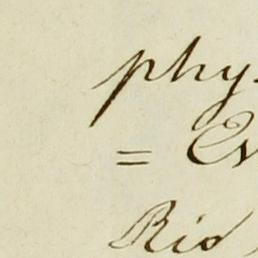 phy-
= Ev
Rio